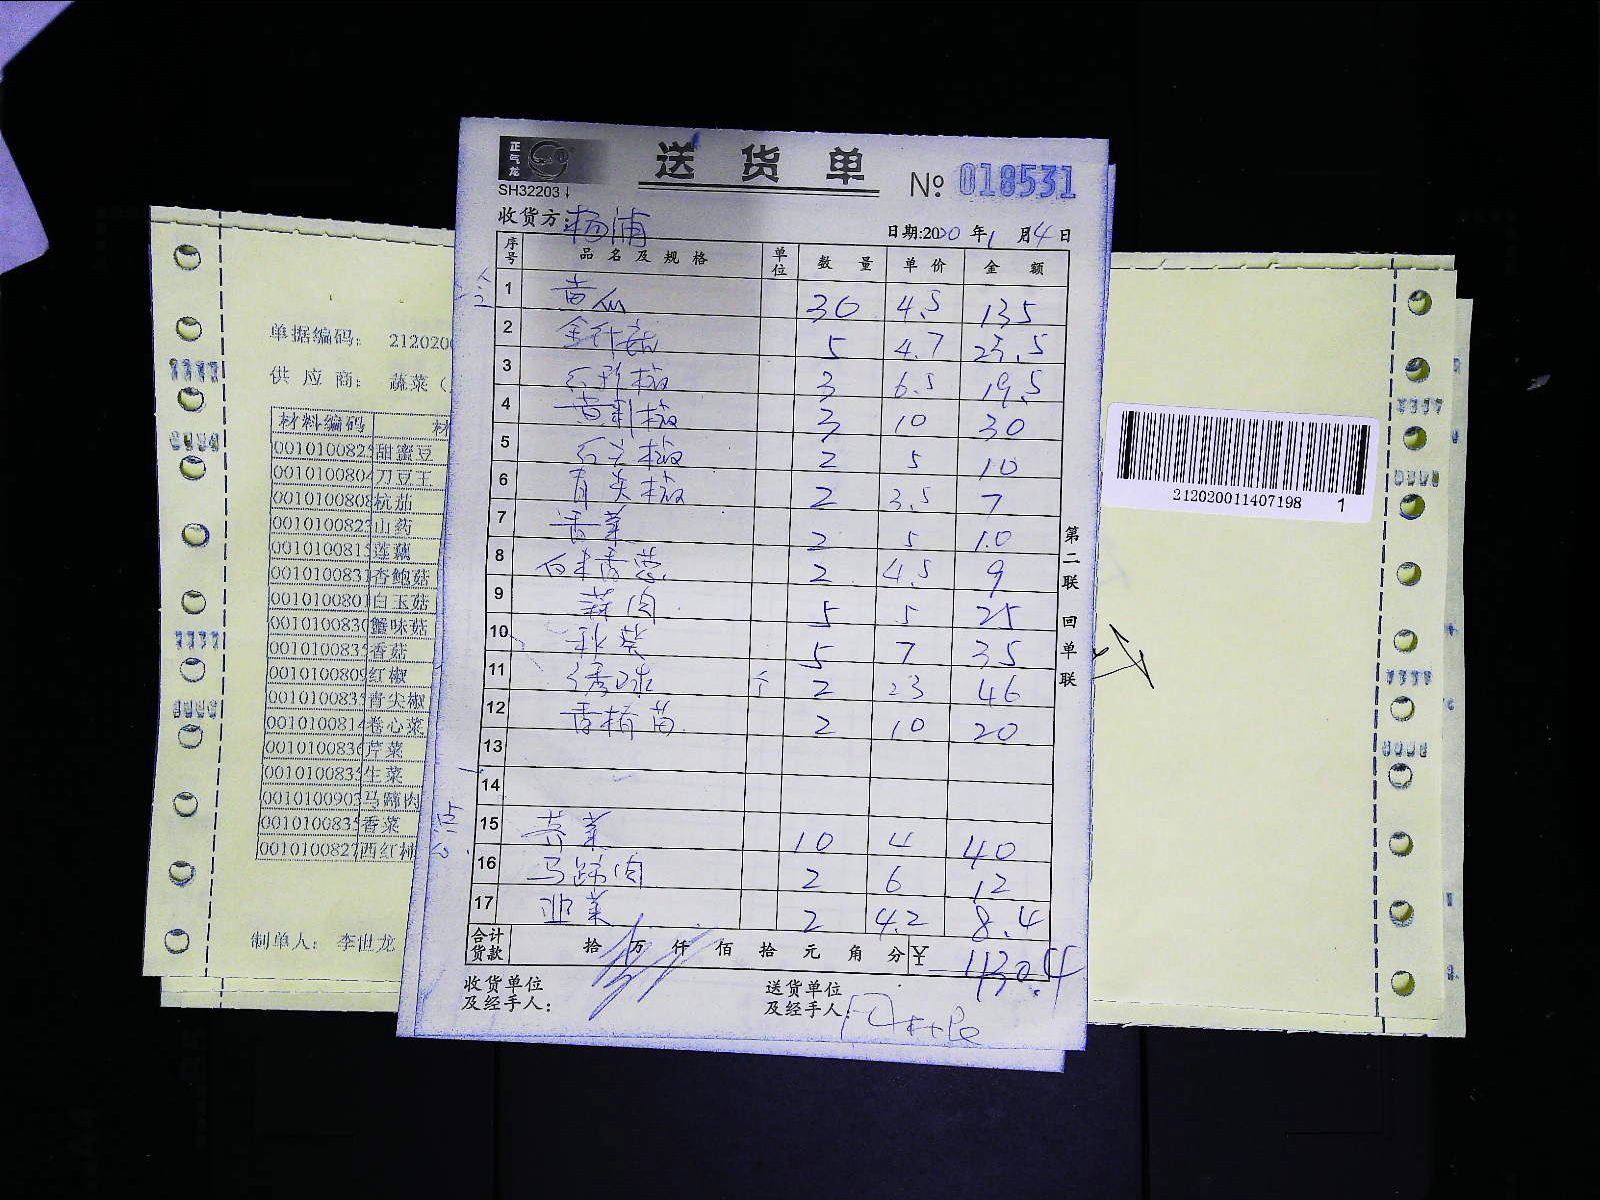 正气龙
SH32203
送货单
№ 018531
收货方:杨浦
日期:2020年1月4日
序号 品名及规格 单位 数量 单价 金额
1 黄瓜 30 4.5 135
2 金针菇 5 4.7 23.5
3 红彩椒 3 6.5 19.5
4 黄彩椒 3 10 30
5 红尖椒 2 5 10
6 青尖椒 2 3.5 7
7 香菜 2 5 10
8 2 4.5 9
9 蒜肉 5 5 25
10 秋葵 5 7 35
11 绣球 个 2 23 46
12 香椿苗 2 10 20
13
14
15 芹菜 10 4 40
16 马蹄肉 2 6 12
17 韭菜 2 4.2 8.4
合计货款 拾万仟佰拾元角分 ¥ 430.4
收货单位及经手人:
送货单位及经手人:
第二联 回单联
单据编码: 212020
供应商: 蔬菜(
材料编码 材
001010082 甜蜜豆
001010080 刀豆王
001010080 杭茄
001010082 山药
001010081 莲藕
001010083 杏鲍菇
001010080 白玉菇
001010083 蟹味菇
001010083 香菇
001010080 红椒
001010083 青尖椒
001010081 卷心菜
001010083 芹菜
001010083 生菜
001010090 马蹄肉
001010083 香菜
001010082 西红柿
制单人: 李世龙
212020011407198 1